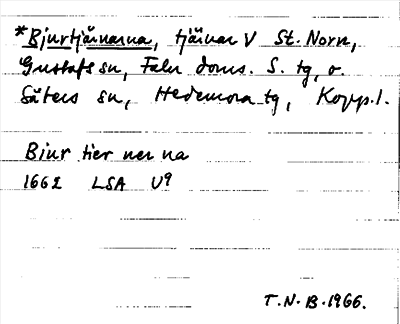 *Bjurtjärnarna, tjärnar V St. Norn,
Gustafs sn, Falu doms. S. tg, o.
Säters sn, Hedemora tg, Kopp.l.
Biur tier ner na
1662 LSA U9
T.N.B. 1966.